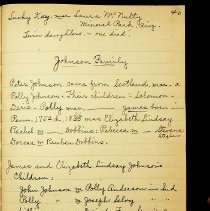 40
Lucky Kay. mar Laura McNulty
Mineral Park, Ariz.
Twin daughters - one died.
Johnson Family
Peter Johnson came from Scotland, mar. a
Polly Johnson. Their children: Solomon -
Polly mar. James born in
Penn. 1752 d. 1838 mar Elizabeth Lindsay
Rachel m Dobbins. Rebecca m Stevens
Dorcas m Reuben Dobbins.
James and Elizabeth Lindsay Johnson's
Children:
John Johnson m Polly Anderson in Ind
Polly " m Joseph